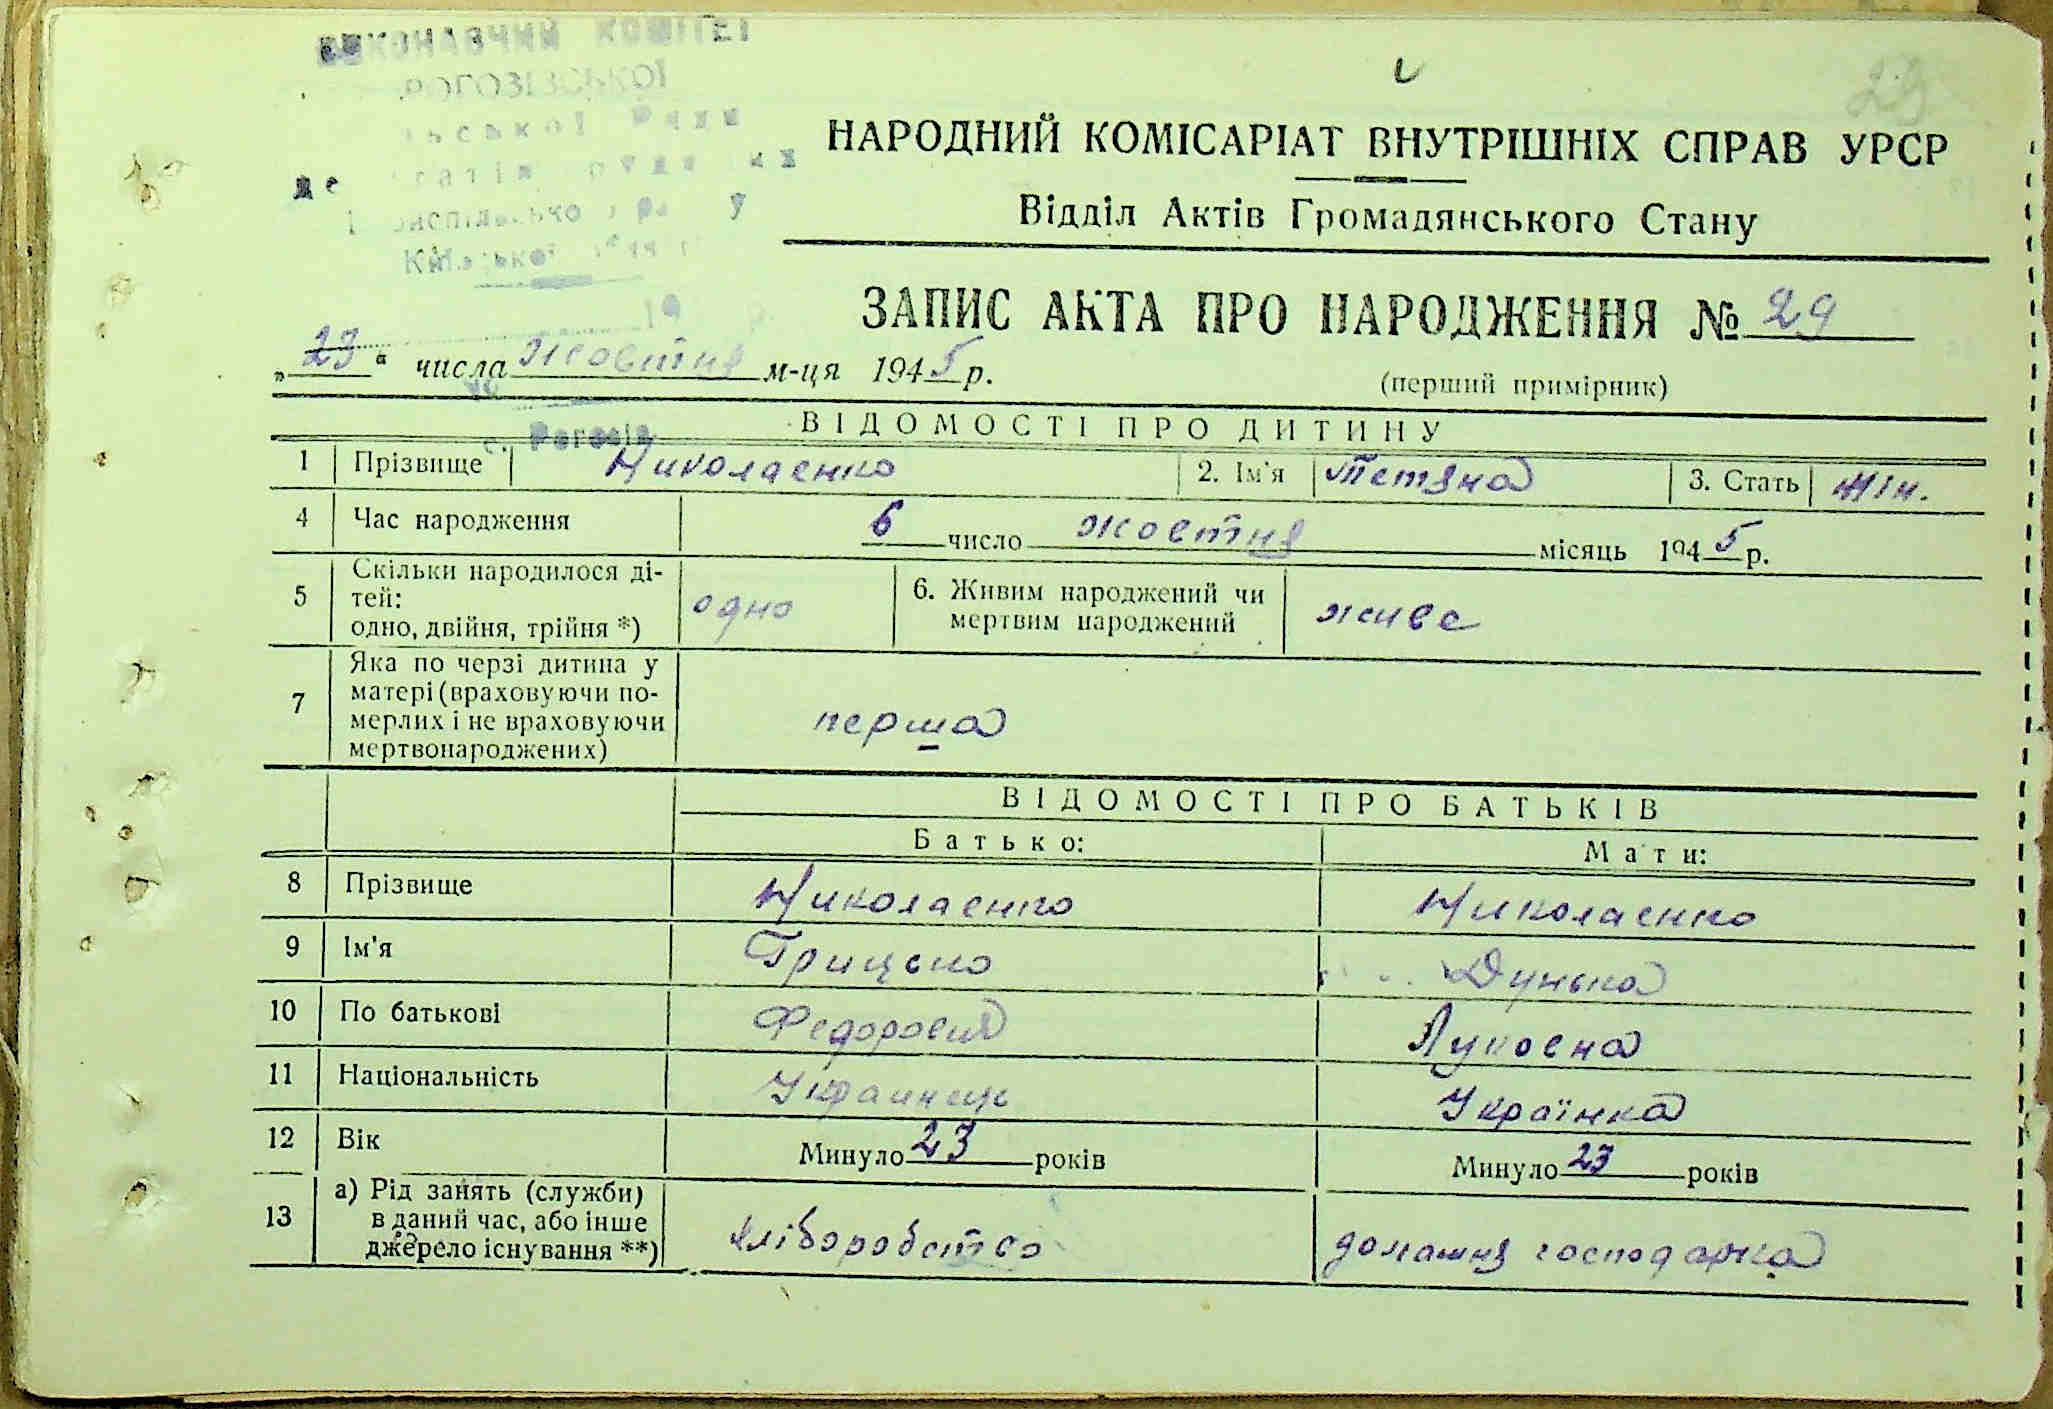 ВИКОНАВЧИЙ КОМІТЕТ
РОГОЗІВСЬКОЇ
29
НАРОДНИЙ КОМІСАРІАТ ВНУТРІШНІХ СПРАВ УРСР
Відділ Актів Громадянського Стану
ЗАПИС АКТА ПРО НАРОДЖЕННЯ № 29
„23“ числа жовтня м-ця 1945 р.
(перший примірник)
с. Рогозів
ВІДОМОСТІ ПРО ДИТИНУ
1 Прізвище Николаенко 2. Ім'я Тетяна 3. Стать жін.
4 Час народження 6 число жовтня місяць 1945 р.
5 Скільки народилося ді-
тей:
одно, двійня, трійня *) одно 6. Живим народжений чи
мертвим народжений живе
7 Яка по черзі дитина у
матері (враховуючи по-
мерлих і не враховуючи
мертвонароджених) перша
ВІДОМОСТІ ПРО БАТЬКІВ
Батько: Мати:
8 Прізвище Николаенко Николаенко
9 Ім'я Грицько Дунька
10 По батькові Федорович Луковна
11 Національність Украинець Українка
12 Вік Минуло 23 років Минуло 23 років
13 а) Рід занять (служби)
в даний час, або інше
джерело існування **) хліборобство домашня господарка